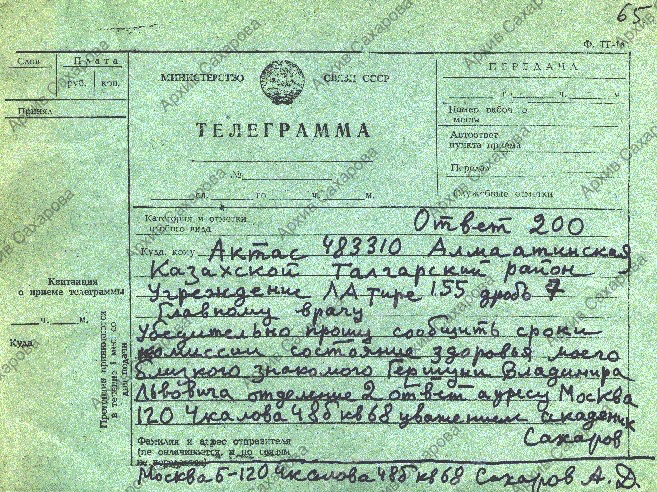 65
Ф. ТГ-1а
Слов
Плата
руб. коп.
Принял
МИНИСТЕРСТВО СВЯЗИ СССР
ТЕЛЕГРАММА
№
сл. го ч. м.
ПЕРЕДАЧА
г. ч. м.
Номер рабочего места
Автоответ
пункта приема
Передал
Служебные отметки
Категория и отметки
особого вида
Ответ 200
Куда, кому Актас 483310 Алмаатинская
Казахской Талгарский район
Учреждение ЛА тире 155 дробь 7
Главному врачу
Убедительно прошу сообщить сроки
комиссии состояние здоровья моего
близкого знакомого Гершуни Владимира
Львовича отделение 2 ответ адресу Москва
120 Чкалова 48б кв 68 уважением академик
Сахаров
Квитанция
о приеме телеграммы
ч. м.
Куда
Претензии принимаются
в течение 1 мес. со
дня подачи
Фамилия и адрес отправителя
(не оплачивается и по связи
не передается)
Москва Б-120 Чкалова 48б кв 68 Сахаров А.Д.
Архив Сахарова